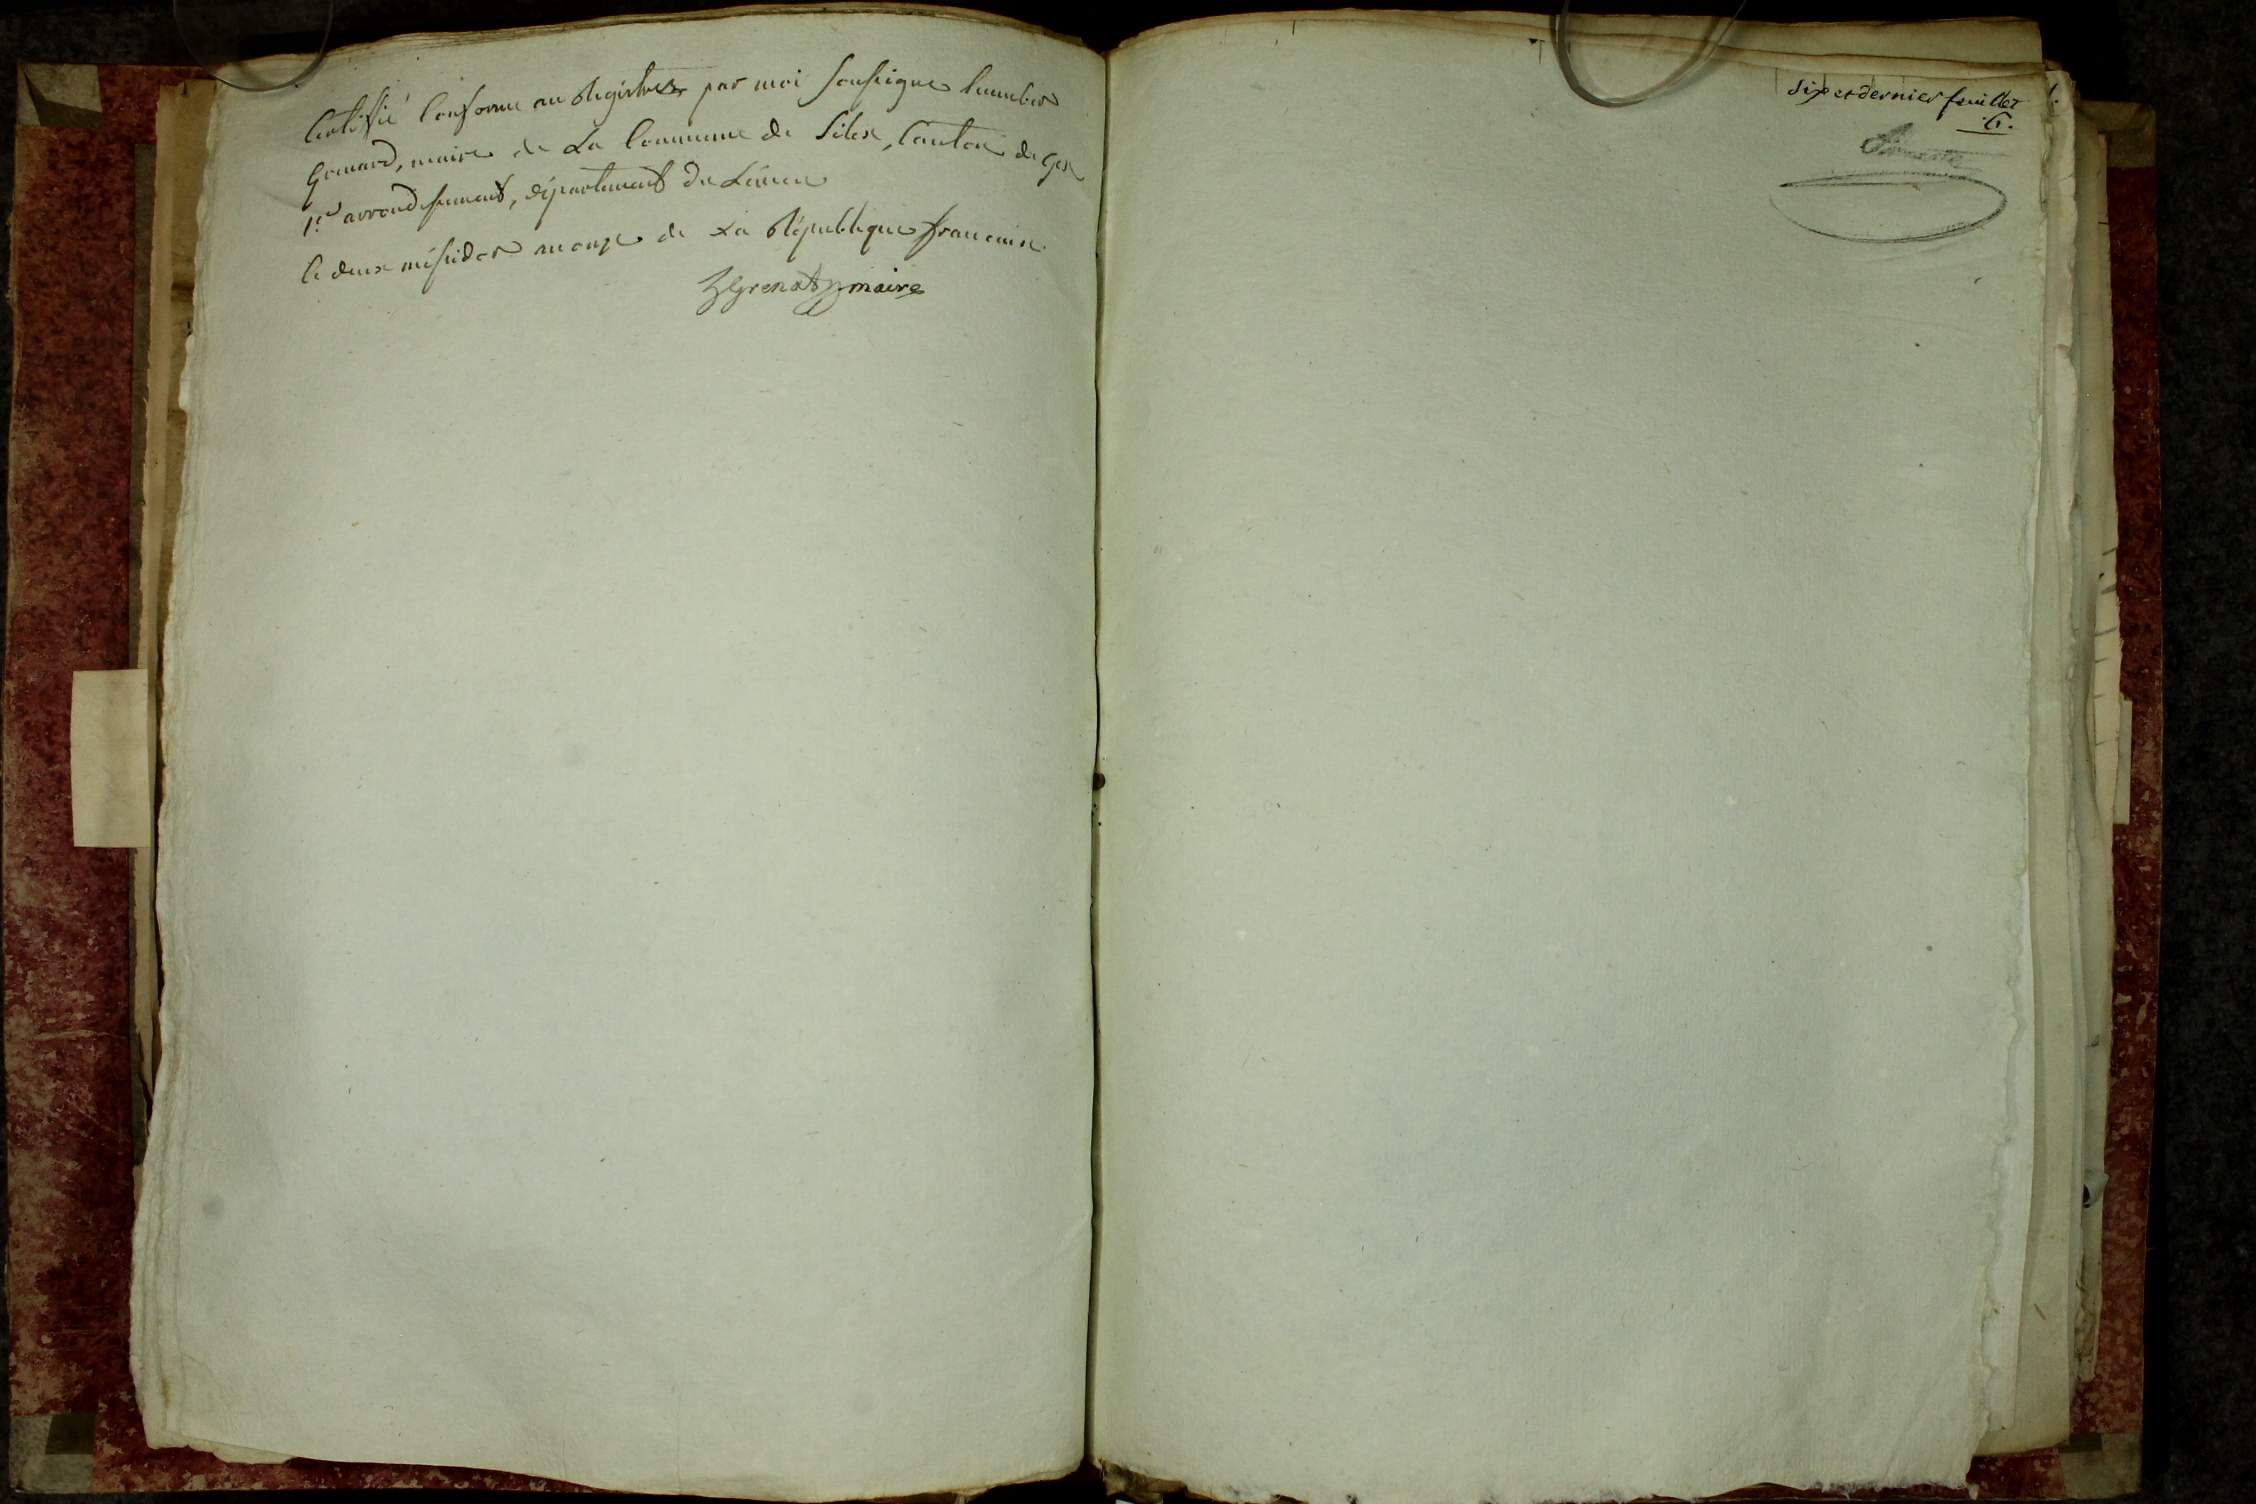 Certifié Conforme au Registre par moi soussigné humbert
Grenard, maire de La Commune de Silex, Canton de Gex
1er arrondissement, département du Léman
le deux messidor an onze de La République française
hGrenard maire
Six et dernier feuillet
6.